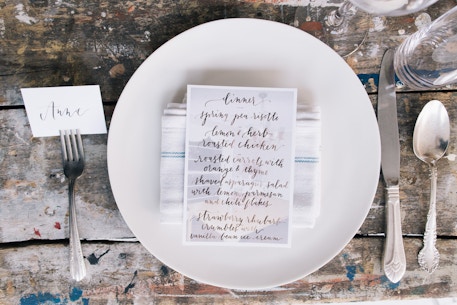 Anne
dinner
spring pea risotto
lemon & herb
roasted chicken
roasted carrots with
orange & thyme
shaved asparagus salad
with lemon, parmesan
and chili flakes
strawberry rhubarb
crumbles with
vanilla bean ice cream